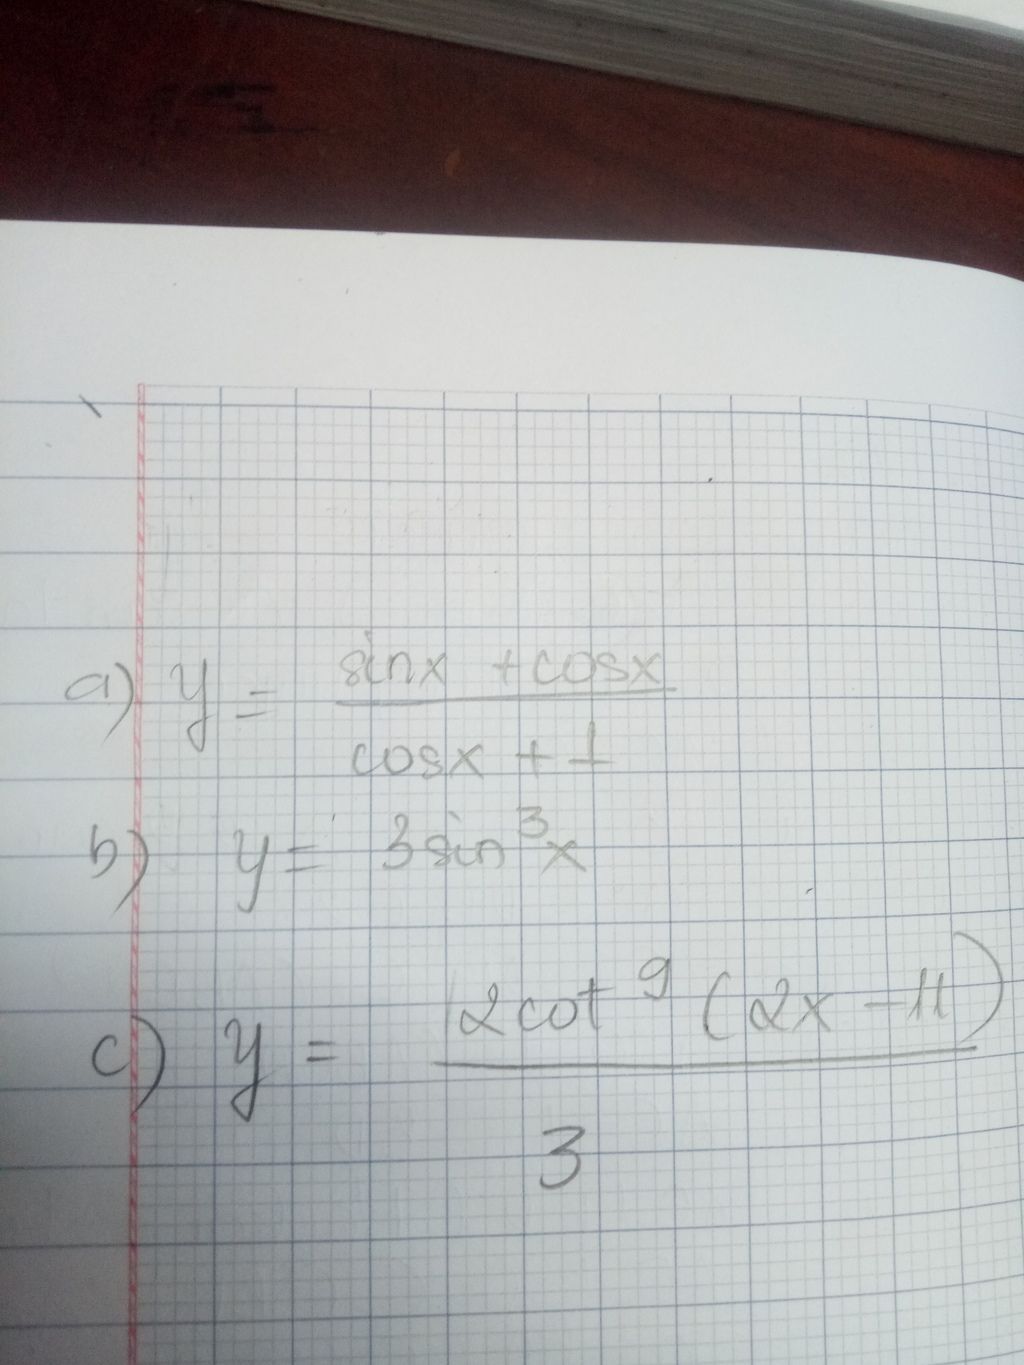 a) y = sinx + cosx / cosx + 1
b) y = 3sin³x
c) y = 2cot⁹(2x - 11) / 3